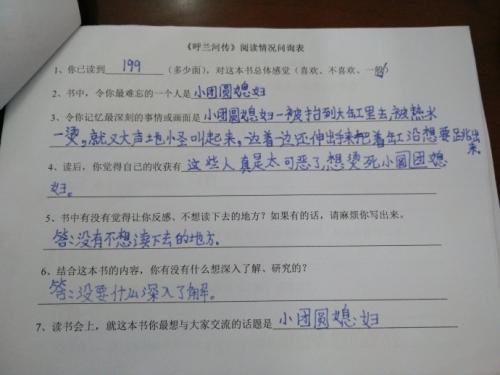 《呼兰河传》阅读情况问询表
1、你已读到 199 (多少面)，对这本书总体感觉(喜欢、不喜欢、一般)
2、书中，令你最难忘的一个人是 小团圆媳妇
3、令你记忆最深刻的事情或画面是 小团圆媳妇一被抬到大缸里去，被热水
一烫，就又大声地怪叫起来，边着边还伸出手来把着缸沿想要跳出来。
4、读后，你觉得自己的收获有 这些人真是太可恶了，想烫死小圆团媳
妇。
5、书中有没有觉得让你反感、不想读下去的地方？如果有的话，请麻烦你写出来。
答：没有不想读下去的地方。
6、结合这本书的内容，你有没有什么想深入了解、研究的？
答：没要什么深入了解。
7、读书会上，就这本书你最想与大家交流的话题是 小团圆媳妇